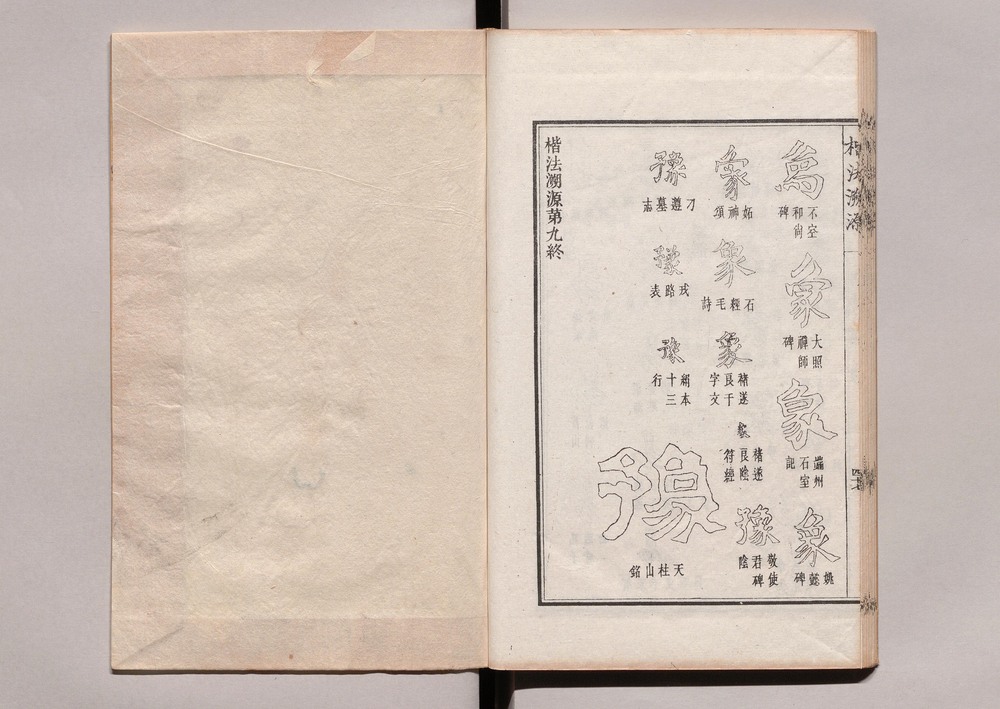 楷法溯源
象
不空
和尚
碑
象
大照
禪師
碑
象
端州
石室
記
象
姚懿碑
象
妬神頌
象
石經毛詩
象
褚遂
良千
字文
象
褚遂
良陰
符經
豫
敬使
君碑
陰
豫
刁遵墓志
豫
戎路表
豫
絹本
十三
行
豫
天柱山銘
楷法溯源第九終